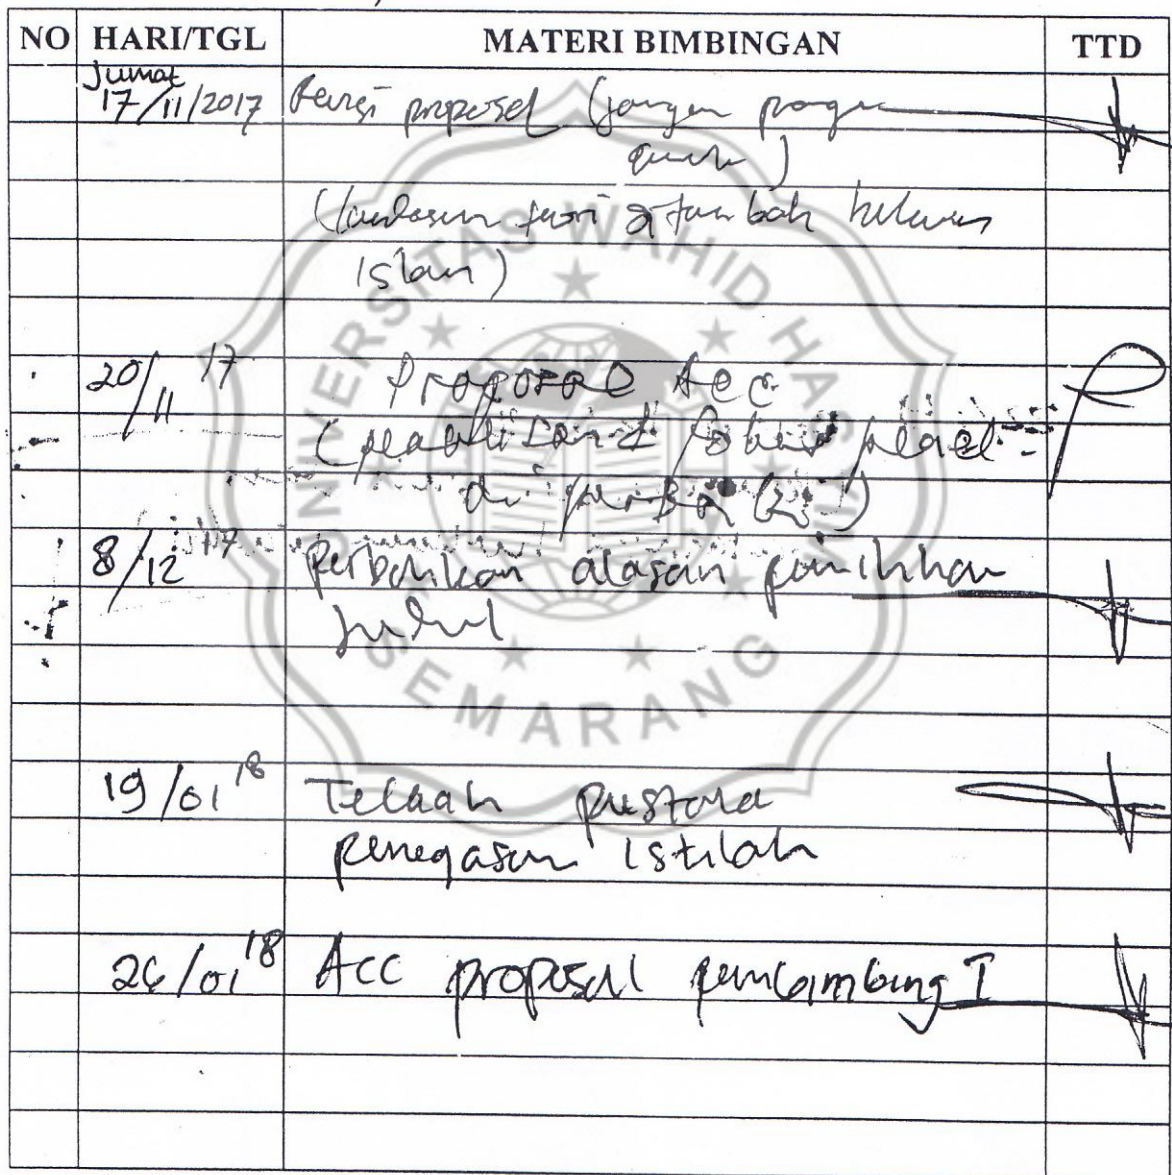 NO HARI/TGL MATERI BIMBINGAN TTD
Jumat
17/11/2017 Revisi proposal (jangan
(landasan teori ditambah hukum
Islam)
20/11 17 Proposal Acc
di
8/12 17 Perbaikan alasan pemilihan
judul
19/01 18 Telaah pustaka
penegasan istilah
26/01 18 Acc proposal pembimbing I
UNIVERSITAS WAHID HASYIM
SEMARANG